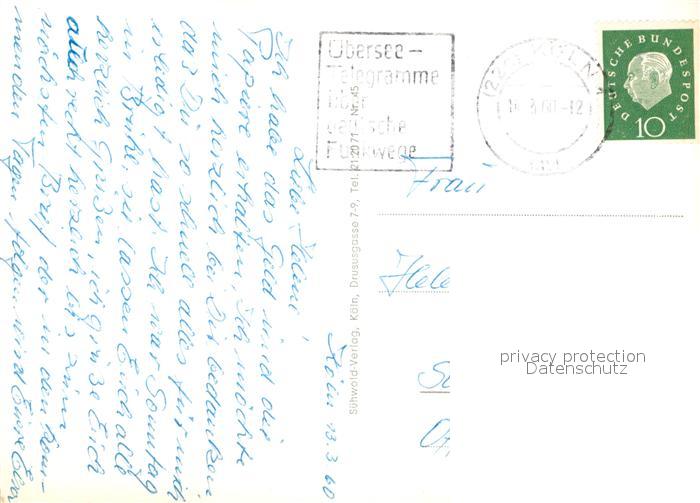 Köln 13.3.60
Liebe Helene!
Ich habe das Geld und die
Papiere erhalten, ich möchte
mich herzlich bei Dir bedanken
das Du so schnell alles für mich
erledigt hast. Ich war Sonntag
in Brühl, sie lassen Euch alle
herzlich Grüßen, ich grüße Euch
auch recht herzlich bis zum
nächsten Brief der in den kom-
menden Tagen folgen wird
Sühwold-Verlag, Köln, Drususgasse 7-9, Tel. 212071 Nr. 45
Übersee-
Telegramme
über
deutsche
Funkwege
(22c) KÖLN 1
3.60-12
DEUTSCHE BUNDESPOST
10
Frau
Hele
privacy protection
Datenschutz